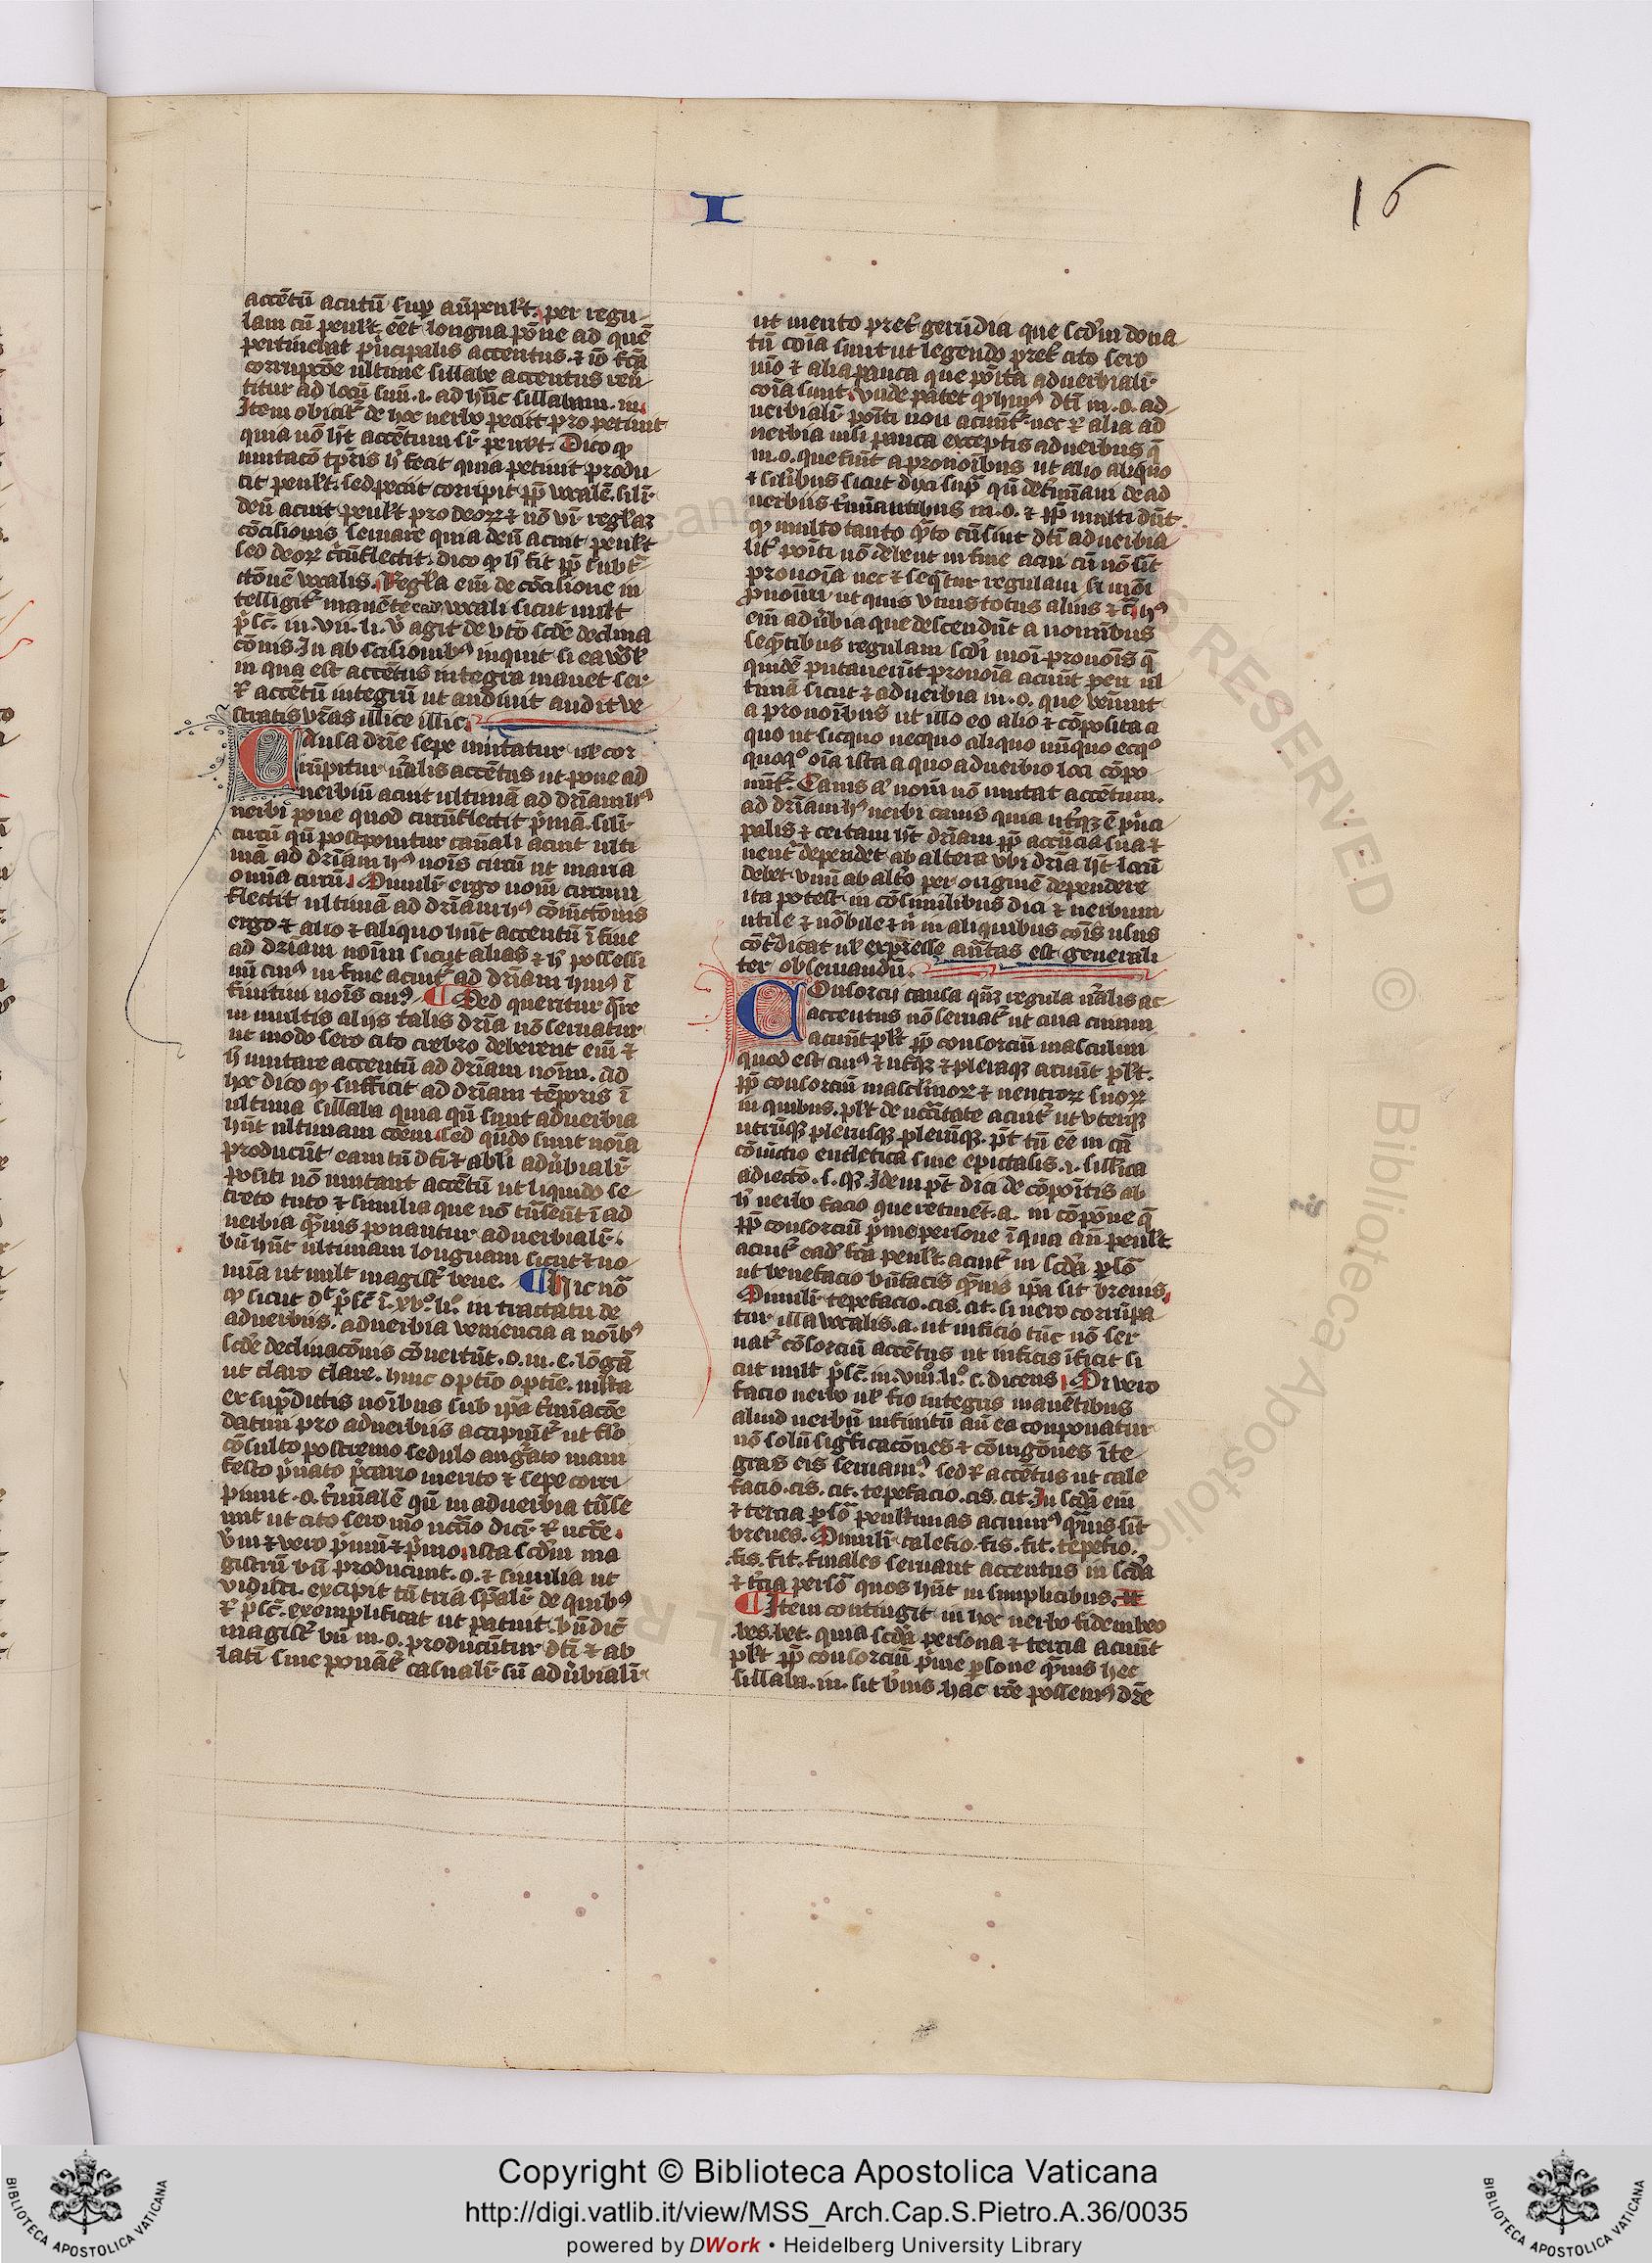 I
16
accētū acutū suꝑ añpenlt. per regu
lam cū penlt. eēt longua pōne ad quē
pertinebat pͥncipalis accentus ⁊ iō fcā
corrupcōe ultime sillabe accentus reū
titur ad locū suū .i. ad hāc sillabam. in
Item obicitͬ de hoc uerbo pecijt pro petiuit
quia nō hꝫ accētum sꝫ penlt. Dico ꝙ
mutacō tꝑris hͦ fecit quia petiuit produ
cit penlt. sed pecijt corripit ꝓpter uocalē. siliͬ
deū acuit penlt. pro deoꝝ ⁊ nō uͥ regłaꝫ
cōcisionis seruare quia deū acuit penlt
sed deoꝝ cͬcūflectit. dico ꝙ hͦ fit ꝓpter subtͣ
ctōnē uocalis. Regła eīm de cōcisione in
telligitͬ manēte eadē uocali sicut uult
pͥsc. in .vii. li. uͥ agit de vtō scōe declina
cōnis. In abscisionibꝰ inquit si ea uocalis
in qua est accētus integra manet ser
⁊ accētū integrū ut audiuit audit ue
stratis vr̄as illice illic.
Causa dr̄ie sepe mutatur uł cor
rūpitur n̄alis accētus ut pone ad
uerbiū acuit ultimā ad dr̄iam hꝰ
uerbi pone quod circūflectit pͥmā. siliͬ
circū qn̄ postponitur cāuali acuit ulti
mā ad dr̄iam hꝰ noīs circū ut maria
omnia circū. Simiłͬ ergo noīm circum
flectit ultimā ad dr̄iam hꝰ cōiūctōnis
ergo ⁊ alio ⁊ aliquo hn̄t accentū ī fine
ad dr̄iam noīm sicut alias ⁊ hͦ possessi
uū cuiꝰ in fine acuitͬ ad dr̄iam huiꝰ ī
finitiui noīs cuiꝰ. Sed queritur qͣre
in multis alijs talis dr̄ia nō seruatur
ut modo sero cito crebro deberent eīm ⁊
hͦ mutare accentū ad dr̄iam noīm. Ad
hoc dico ꝙ sufficit ad dr̄iam tēporis ī
ultima sillaba quia qn̄ sunt aduerbia
hn̄t ultimam cōem sed qn̄do sunt noīa
producūt eam tū dt̄i ⁊ abłi adūbialiͬ
positi nō mutant accētū ut liquido se
creto tuto ⁊ similia que nō trāseūt ī ad
uerbia qͣmuis ponantur aduerbialiͬ.
bn̄ hn̄t ultimam longuam sicut ⁊ no
mīa ut uult magistͬ bene. Hic nō
ꝙ sicut dt pͥsc ī .xvͦ. liͦ. in tractatu de
aduerbijs. aduerbia veniencia a noībꝰ
scōe declinacōnis cōuertūt .o. in .e. lōgā
ut claro clare. hinc optīo optīe. iuxta
ex supͣdictis noībus sub ip̄a tͥmīacōe
datiui pro aduerbijs accipiūtͬ ut fłso
cōsulto postremo sedulo augͣto mani
festo pͥuato pͥcario merito ⁊ sepe corri
piunt .o. tͥmīalē qn̄ in aduerbia trāse
unt ut cito sero īmo nccīo dicīͬ ⁊ nccē.
vͥm ⁊ vero pͥmū ⁊ pͥmo. ista scd̄m ma
gistrū bn̄ producunt .o. ⁊ similia ut
vidisti. excipit tn̄ tria spālͬ de quibꝰ
⁊ pͥsc. exemplificat ut patuit. bn̄ dicit
magistͬ bn̄ in .o. producūtur dt̄i ⁊ ab
latī siue ponātͬ casualiͬ siue adūbialiͬ
ut merito pretͬ gerūdia que scd̄m dona
tū cōia sunt ut legendo pretͬ cito sero
īmo ⁊ alia pauca que poīta aduerbialiͬ
cōia sunt. Vnde patet ꝙ huiꝰ dt̄i in .o. ad
uerbialiͬ poīti non acuūtͬ. nec ⁊ alia ad
uerbia nisi pauca exceptis aduerbijs q̄
in .o. que fiūt a pronoībus ut alio aliquo
⁊ silibus sicut dixi supͣ qn̄ detͥmīaui de ad
uerbijs tͥmīantibus in .o. ⁊ ꝓpter multi dn̄t
ꝙ multo tanto qͣto cū sint dt̄i aduerbia
litͬ poīti nō debent in fine acui cū nō sit
pronoīa nec ⁊ seqͣntur regulam sꝫ mōi
pronoīm ut quis vnus totus alius ⁊ c̄ hꝰ
eīm adūbia que descendūt a nomībus
seqͣntibus regulam scd̄i moī pronoīs q̄
quidē putauerūt pronoīa acuūt pen ul
timā sicut ⁊ aduerbia in .o. que ueniunt
a pronoībus ut illo eo alio ⁊ cōposita a
quo ut sicquo necquo aliquo nūquo ecqͦ
quoqͦ. oīa ista a quo aduerbio loci cōpo
nūtͬ. Canis aͭ noīm nō mutat accentum.
ad dr̄iam hꝰ uerbi canis quia utrūqꝫ ē pͥnci
palis ⁊ certam hꝫ dr̄iam ꝓpter accn̄cia sua ⁊
neutͬ dependet ab altera vbi dr̄ia hꝫ locū
debet vnū ab altͦ per originē dependere
ita potest in cōsimilibus dici ⁊ uerbum
utile ⁊ nōbile ⁊ n̄ in aliquibus cōis usus
cōtͬdicat uł expresse aūtas est generali
ter obseruandū.
Consorcij causa qn̄qꝫ regula n̄alis ac
accentus nō seruatͬ ut cuia cuium
acuūt plt ꝓpter consorciū masculini
quod est cuiꝰ ⁊ utrqꝫ ⁊ pleraqꝫ acuūt plt.
ꝓpter consorciū masclinoꝝ ⁊ neutroꝝ suoꝝ
in quibus. plt de nccītate acuitͬ ut vterqꝫ
utrūqꝫ plerusqꝫ plerūqꝫ. pt̄ tn̄ eē in cā
cōiūctio encletica siue epictalis .i. sillīca
adiectō .s. qꝫ. Idem pt̄ dici de cōpoītis ab
hͦ uerbo facio que retinēt .a. in cōpōne q̄
ꝓpter consorciū pͥme persone ī qua añ penlt.
acuitͬ eadē fcā penlt. acuitͬ in scd̄a ꝑsō
ut benefacio bn̄facis qͣmuis ip̄a sit breuis.
Similiͬ tepefacio .cis. cit. si uero corrūpa
tur illa uocalis .a. ut inficio tūc nō ser
uatͬ cōsorciū accētus ut inficis īficit si
cut uult pͥsc. in .viiiͦ. liͦ. c. dicens. Si vero
facio uerbo uł fio integris manētibus
aliud uerbū infinitū añ ea componatur
nō solū significacōnes ⁊ cōiugōnes īte
gras eis seruamꝰ sed ⁊ accētus ut cale
facio .cis. cit. tepefacio .cis. cit. In scd̄a eīm
⁊ tercia ꝑsō penltimas acuimꝰ qͣmuis sīt
breues. Similiͬ calefio .fis. fit. tepefio.
fis. fit. finales seruant accentus in scd̄a
⁊ tͥcia persō quos hn̄t in simplicibus.
Item contingit in hoc uerbo fidembeo
bes. bet. quia scd̄a persona ⁊ tercia acuūt
plt ꝓpter consorciū pͥme ꝑsone qͣmuis hec
sillaba .in. sit bͣuis. hac rōe possemꝰ dr̄e
Copyright © Biblioteca Apostolica Vaticana
http://digi.vatlib.it/view/MSS_Arch.Cap.S.Pietro.A.36/0035
powered by DWork • Heidelberg University Library
BIBLIOTECA APOSTOLICA VATICANA
BIBLIOTECA APOSTOLICA VATICANA